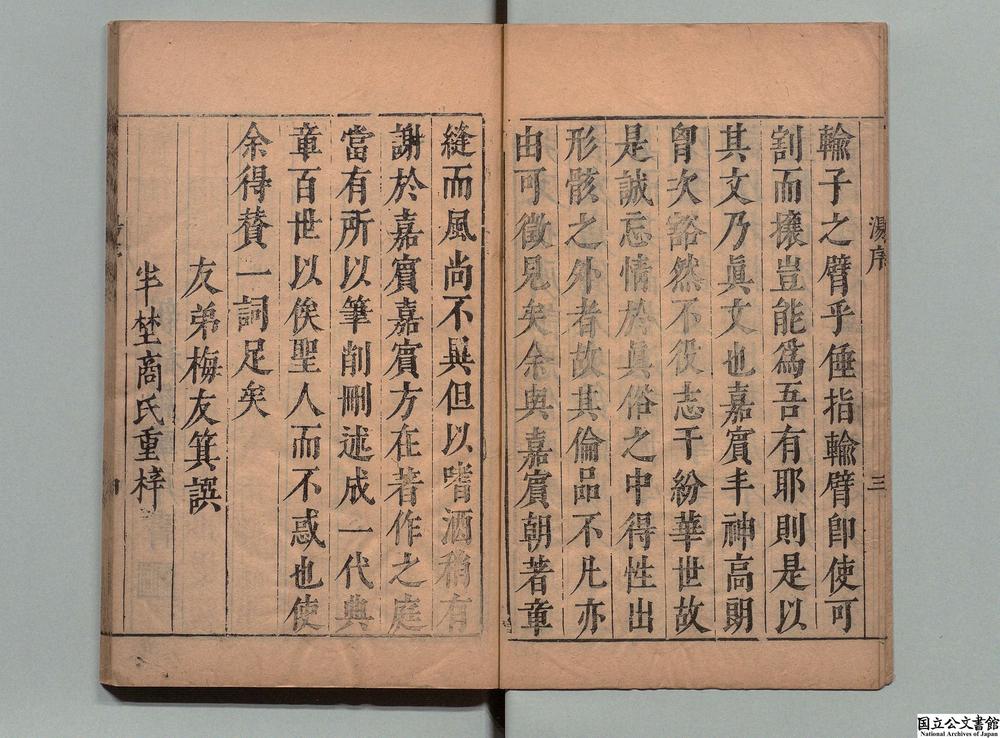 湯序
三
輸子之臂乎倕指輸臂卽使可
割而攘豈能爲吾有耶則是以
其文乃眞文也嘉賓丰神高朗
胷次豁然不役志于紛華世故
是誠忘情於眞俗之中得性出
形骸之外者故其倫品不凡亦
由可徵見矣余與嘉賓朝著章
縫而風尚不異但以嗜酒稍有
謝於嘉賓嘉賓方在著作之庭
當有所以筆削刪述成一代典
章百世以俟聖人而不惑也使
余得贊一詞足矣
友弟梅友箕譔
半埜商氏重梓
国立公文書館
National Archives of Japan